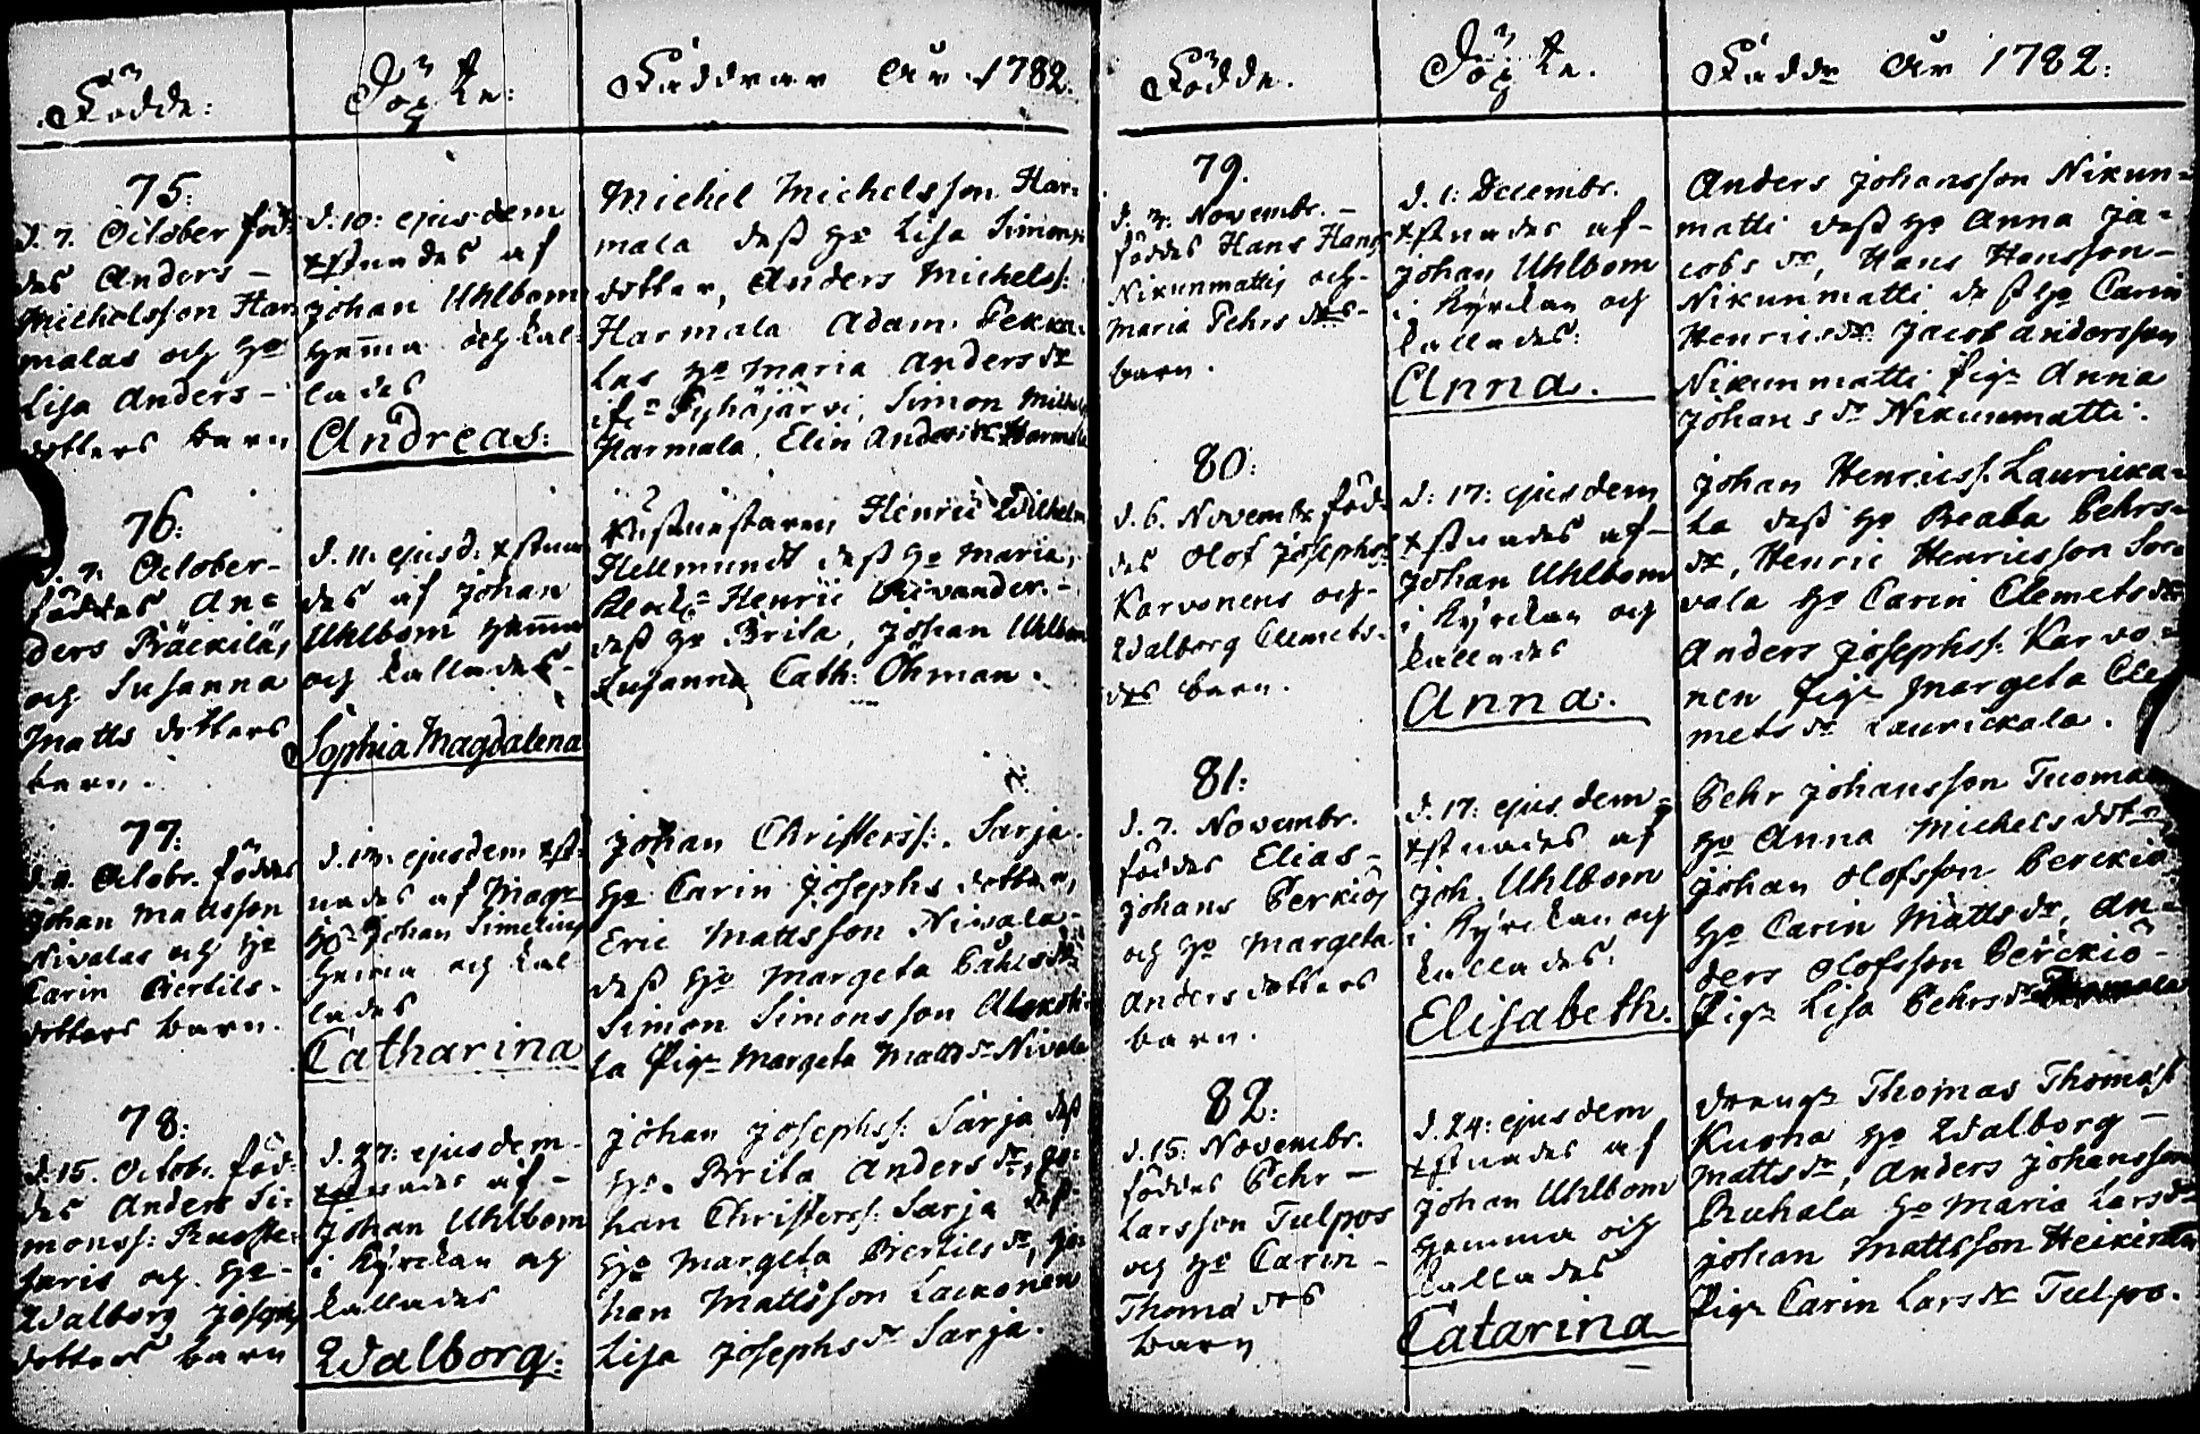 Födde:
Döpte:
Faddrar År 1782.
75:
d. 7. October föd-
des Anders -
Michelsson Har-
malas och H:o
Lisa Anders -
dotters barn
d. 10: ejusdem
xstnades af
Johan Uhlbom
hemma och kal-
lades
Andreas:
Michel Michelsson Har-
mala dess H:o Lisa Simons
dotter, Anders Michelss:
Harmala Adam Pekka-
las H:o Maria Anders dr
if:n Pyhäjärvi, Simon Michels
Harmala, Elin Anders dr Harmala
76:
d. 7. October-
föddes An-
ders Präckiläs
och Susanna
Matts dotters
barn.
d. 11. ejusd. xstna-
des af Johan
Uhlbom hemma
och kallades-
Sophia Magdalena
Henric Wilhelm
Hellmundt dess H:o Maria,
Henric Rivander.-
dess H:o Brita, Johan Uhlbom
Susanna Cath: Öhman.
77:
d. 8. Octobr. föddes
Johan Mattsson
Nivalas och H:o
Carin Biertils-
dotters barn.
d. 13. ejusdem xst-
nades af Mag:r
H:r Johan Simelius
hemma och kal-
lades
Catharina
Johan Christerss:. Sarja.
H:o Carin Josephs dotter,
Eric Mattsson Nivala-
dess H:o Margeta Påhls dr
Simon Simonsson Alakoti-
la Pig:n Margeta Matts dr Nivala
78:
d. 15. Octobr. föd-
des Anders Si-
monss: Ruotsa-
laris och H:o-
Walborg Josephs
dotters barn
d. 27: ejusdem-
xstnades af -
Johan Uhlbom
i Kyrckan och
kallades
Walborg:
Johan Josephss: Sarja dess
H:o. Brita Anders dr, Jo-
han Christerss: Sarja dess
H:o Margeta Biertils dr, Jo-
han Mattsson Lackonen
Lisa Josephs dr Sarja.
Födde.
Döpte.
Fadde År 1782:
79.
d. 3. Novembr. -
föddes Hans Hanss
Nikunmattis och-
Maria Pehrs drs-
barn.
d. 1: Decembr.
xstnades af-
Johan Uhlbom
i Kyrckan och
kallades:
Anna.
Anders Johansson Nikun-
matti dess H:o Anna Ja-
cobs dr, Hans Hansson-
Nikunmatti dess H:o Carin
Henrics dr. Jacob Andersson
Nikunmatti Pig:n Anna
Johans dr Nikunmatti.
80:
d. 6. Novembr föd-
des Olof Josephss
Karvonens och-
Walborg Clemets-
drs barn.
d: 17: ejusdem
xstnades af-
Johan Uhlbom
i Kyrckan och
kallades
Anna:
Johan Henricss: Lauricka-
la dess H:o Beata Pehrs-
dr, Henric Henricsson Sor-
vala H:o Carin Clemets dr
Anders Josephss: Karvo-
nen Pig:n Margeta Cle-
mets dr Laurickala.
81:
d. 7. Novembr.
föddes Elias-
Johans Perkiös
och H:o Margeta
Anders dotters
barn.
d. 17: ejusdem
xstnades af
Joh. Uhlbom
i Kyrckan och
kallades.
Elisabeth.
Pehr Johansson Tuomala
H:o Anna Michels dot-
Johan Olofsson Perckiö
H:o Carin Matts dr, An-
ders Olofsson Perckiö-
Pig:n Lisa Pehrs dr
82:
d. 15: Novembr.
föddes Pehr -
Larsson Tulpos
och H:o Carin -
Thoma drs
barn
d. 24: ejusdem
xstnades af
Johan Uhlbom
hemma och
kallades
Catarina
Dreng:n Thomas Thomass
Kusma H:o Walborg -
Matts dr, Anders Johansson
Ruhala H:o Maria Lars dr
Johan Mattsson Heikirata
Pig:n Carin Lars dr Tulpo.